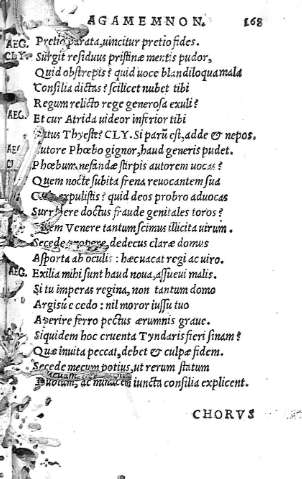 AGAMEMNON. 168
AEG. Pretio parata, uincitur pretio fides.
CLY. Surgit residuus pristinæ mentis pudor,
Quid obstrepis? quid uoce blandiloqua mala
Consilia dictas? scilicet nubet tibi
Regum relicto rege generosa exuli?
AEG. Et cur Atrida uideor inferior tibi
Natus Thyestæ? CLY. Si parū est, adde & nepos.
AE Autore Phœbo gignor, haud generis pudet.
Phœbum nefandæ stirpis autorem uocas?
Quem nocte subita frena reuocantem sua
expulistis? quid deos probro aduocas
Surripere doctus fraude genitales toros?
Venere tantum scimus illicita uirum.
Secede dedecus claræ domus
Asporta ab oculis: hæc uacat regi ac uiro.
AEG. Exilia mihi sunt haud noua, assueui malis.
Si tu imperas regina, non tantum domo
Argisúe cedo: nil moror iussu tuo
Aperire ferro pectus ærumnis graue.
Siquidem hoc cruenta Tyndaris fieri sinam?
Quæ inuita peccat, debet & culpæ fidem.
Secede mecum potius, ut rerum statum
iuncta consilia explicent.
CHORVS